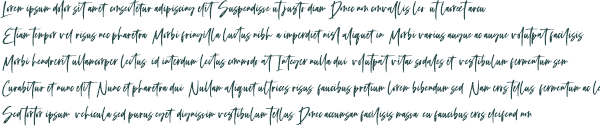 Lorem ipsum dolor sit amet, consectetur adipiscing elit. Suspendisse ut justo diam. Donec non convallis leo, ut laoreet arcu.
Etiam tempor vel risus nec pharetra. Morbi fringilla luctus nibh, a imperdiet nisl aliquet in. Morbi varius augue ac augue volutpat facilisis.
Morbi hendrerit ullamcorper lectus, id interdum lectus commodo at. Integer nulla dui, volutpat vitae sodales et, vestibulum fermentum sem.
Curabitur et nunc elit. Nunc et pharetra dui. Nullam aliquet ultrices risus, faucibus pretium lorem bibendum sed. Nam eros tellus, fermentum ac
Sed tortor ipsum, vehicula sed purus eget, dignissim vestibulum tellus. Donec accumsan facilisis massa, eu faucibus eros eleifend non.